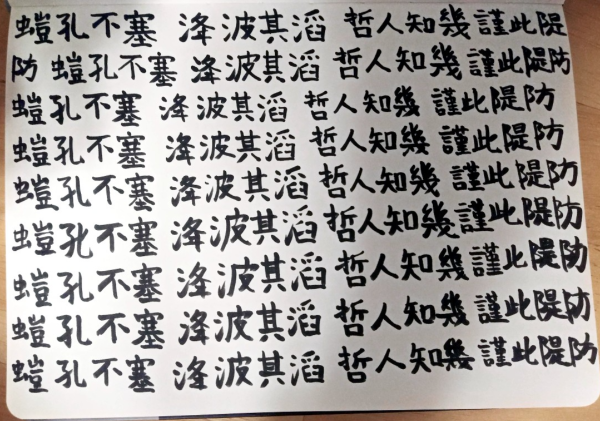 螘孔不塞 洚波其滔 哲人知幾 謹此隄
防 螘孔不塞 洚波其滔 哲人知幾 謹此隄防
螘孔不塞 洚波其滔 哲人知幾 謹此隄防
螘孔不塞 洚波其滔 哲人知幾 謹此隄防
螘孔不塞 洚波其滔 哲人知幾 謹此隄防
螘孔不塞 洚波其滔 哲人知幾 謹此隄防
螘孔不塞 洚波其滔 哲人知幾 謹此隄防
螘孔不塞 洚波其滔 哲人知幾 謹此隄防
螘孔不塞 洚波其滔 哲人知幾 謹此隄防